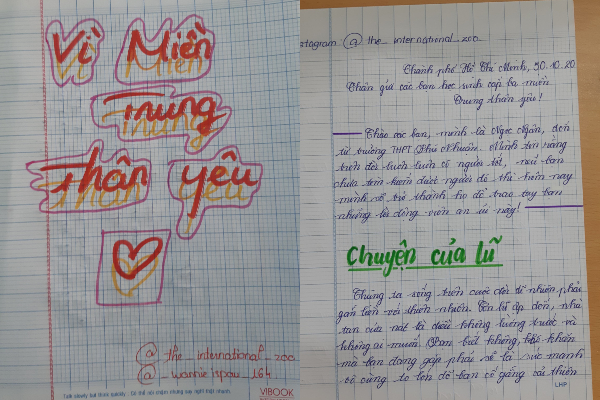 Vì Miền
Trung
Thân yêu
@ the_international_zoo
@ _wannie spau_164
VIBOOK
@ the_international_zoo
Thành phố Hồ Chí Minh, 30.10.20
Thân gửi các bạn học sinh cấp ba miền
Trung thân yêu!
Chào các bạn, mình là Ngọc Ngân, đến
từ trường THPT Phú Nhuận. Mình tin rằng
trên đời luôn luôn có người tốt, nếu bạn
chưa tìm kiếm được người đó thì hôm nay
mình sẽ trở thành họ để trao tay bạn
những lời động viên an ủi này!
Chuyện của lũ
Chúng ta sống trên cuộc đời dĩ nhiên phải
gắn bó với thiên nhiên. Cơn lũ ập đến, nhà
tan cửa nát là điều không lường trước và
không ai muốn. Bạn biết không, khó khăn
mà bạn đang gặp phải sẽ là sức mạnh
vô cùng to lớn để bạn cố gắng cải thiện
LHP